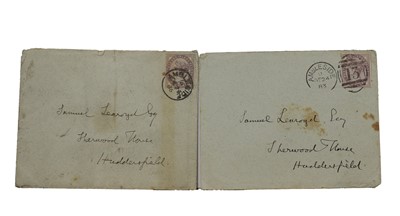 AMBLESIDE
Samuel Learoyd Esq
Sherwood House
Huddersfield
AMBLESIDE
Samuel Learoyd Esq
Sherwood House
Huddersfield.